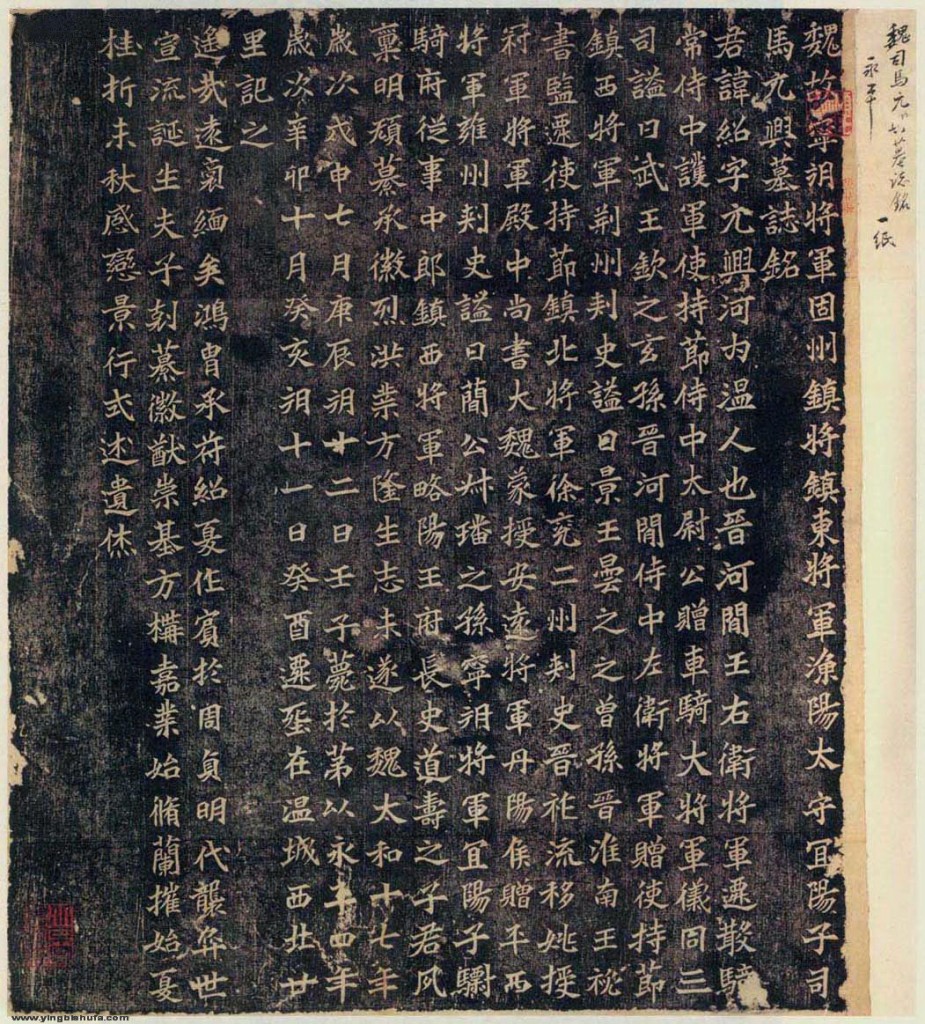 魏司馬元興墓誌銘 一紙
永平
魏故寧朔將軍固州鎮將鎮東將軍漁陽太守宜陽子司
馬元興墓誌銘
君諱紹字元興河內温人也晉河間王右衛將軍遷散騎
常侍中護軍使持節侍中太尉公贈車騎大將軍儀同三
司謚曰武王欽之玄孫晉河間侍中左衛將軍贈使持節
鎮西將軍荊州刺史謚曰景王曇之之曾孫晉淮南王祕
書監遷使持節鎮北將軍徐兖二州刺史晉祚流移姚授
冠軍將軍殿中尚書大魏蒙授安遠將軍丹陽侯贈平西
將軍雍州刺史謚曰簡公叔璠之孫寧朔將軍宜陽子驃
騎府從事中郎鎮西將軍略陽王府長史道壽之子君夙
稟明頽纂承徽烈洪業方隆生志未遂以魏太和十七年
歲次戊申七月庚辰朔廿二日壬子薨於第以永平四年
歲次辛卯十月癸亥朔十一日癸酉遷塟在温城西北廿
里記之
遙哉遠裔緬矣鴻冑承符紹夏作賓於周貞明代襲弈世
宣流誕生夫子剋纂徽猷崇基方構嘉業始脩蘭摧始夏
桂折未秋感戀景行式述遺休
www.yingbishufa.com